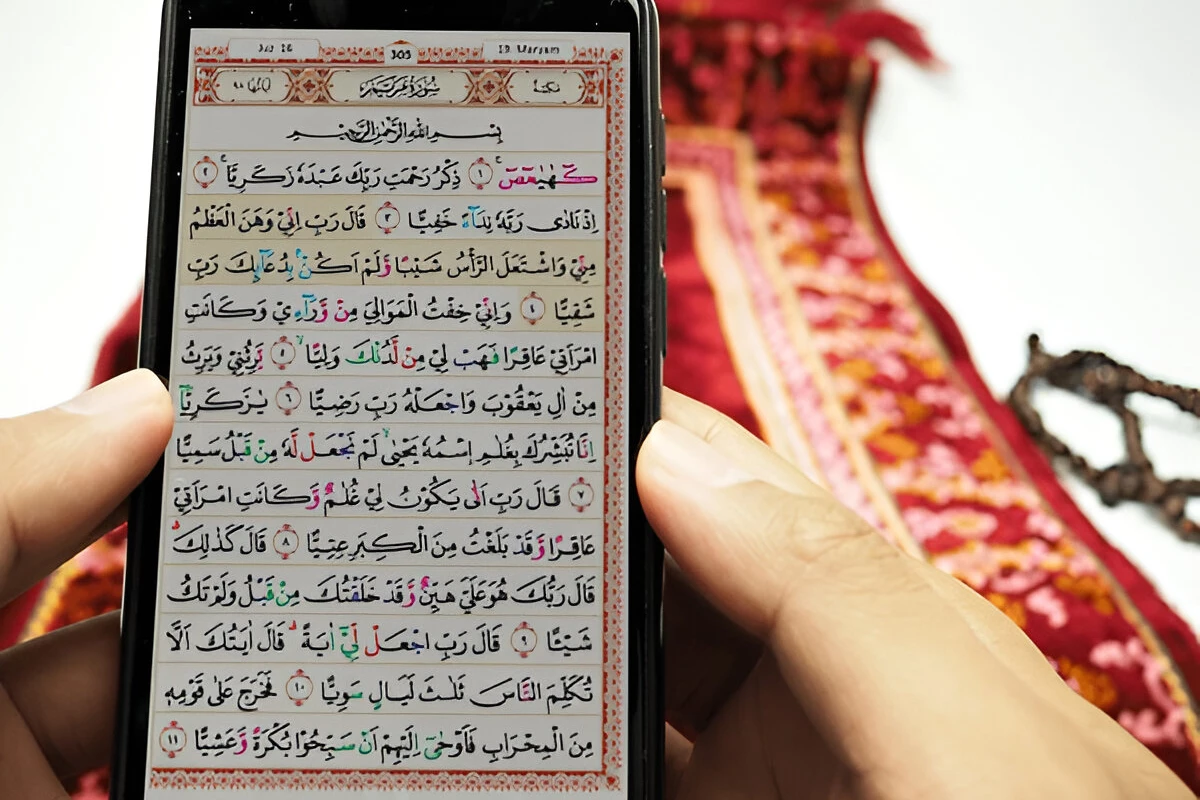 Juz 16 305 19. Maryam
اٰيَاتُهَا ٩٨ سُوْرَةُ مَرْيَمَ مَكِّيَّةٌ
بِسْمِ اللّٰهِ الرَّحْمٰنِ الرَّحِيْمِ
كۤهٰيٰعۤصۤ ۚ ١ ذِكْرُ رَحْمَتِ رَبِّكَ عَبْدَهٗ زَكَرِيَّا ۚ ٢
اِذْ نَادٰى رَبَّهٗ نِدَاۤءً خَفِيًّا ٣ قَالَ رَبِّ اِنِّيْ وَهَنَ الْعَظْمُ
مِنِّيْ وَاشْتَعَلَ الرَّأْسُ شَيْبًا وَّلَمْ اَكُنْۢ بِدُعَاۤىِٕكَ رَبِّ
شَقِيًّا ٤ وَاِنِّيْ خِفْتُ الْمَوَالِيَ مِنْ وَّرَاۤءِيْ وَكَانَتِ
امْرَاَتِيْ عَاقِرًا فَهَبْ لِيْ مِنْ لَّدُنْكَ وَلِيًّا ۙ ٥ يَّرِثُنِيْ وَيَرِثُ
مِنْ اٰلِ يَعْقُوْبَ وَاجْعَلْهُ رَبِّ رَضِيًّا ٦ يٰزَكَرِيَّآ
اِنَّا نُبَشِّرُكَ بِغُلٰمِ ࣙاسْمُهٗ يَحْيٰىۙ لَمْ نَجْعَلْ لَّهٗ مِنْ قَبْلُ سَمِيًّا
٧ قَالَ رَبِّ اَنّٰى يَكُوْنُ لِيْ غُلٰمٌ وَّكَانَتِ امْرَاَتِيْ
عَاقِرًا وَّقَدْ بَلَغْتُ مِنَ الْكِبَرِ عِتِيًّا ٨ قَالَ كَذٰلِكَۗ
قَالَ رَبُّكَ هُوَ عَلَيَّ هَيِّنٌ وَّقَدْ خَلَقْتُكَ مِنْ قَبْلُ وَلَمْ تَكُ
شَيْـًٔا ٩ قَالَ رَبِّ اجْعَلْ لِّيْٓ اٰيَةً ۗ قَالَ اٰيَتُكَ اَلَّا
تُكَلِّمَ النَّاسَ ثَلٰثَ لَيَالٍ سَوِيًّا ١٠ فَخَرَجَ عَلٰى قَوْمِهٖ
مِنَ الْمِحْرَابِ فَاَوْحٰىٓ اِلَيْهِمْ اَنْ سَبِّحُوْا بُكْرَةً وَّعَشِيًّا ١١